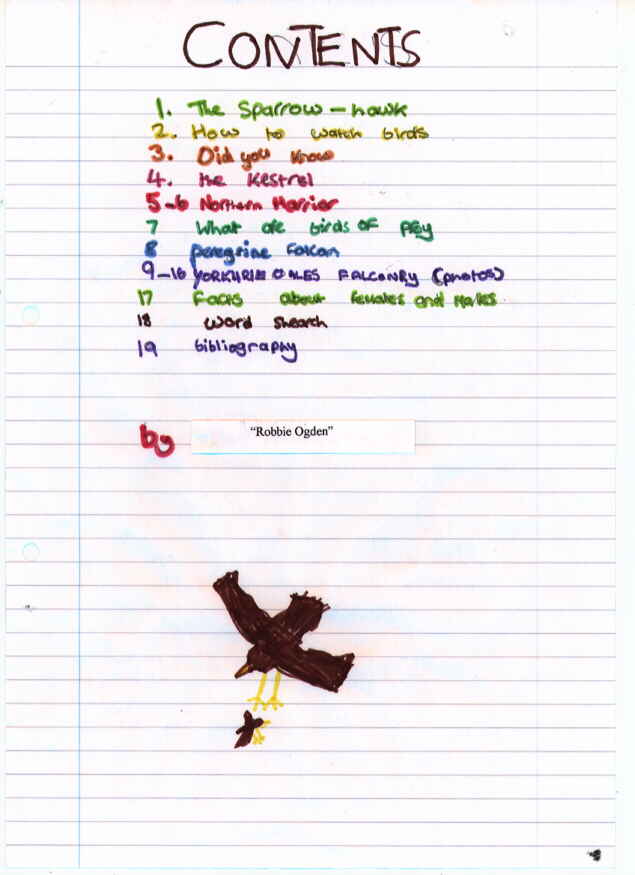 CONTENTS
1. The Sparrow-hawk
2. How to watch birds
3. Did you know
4. the Kestrel
5-6 Northern Harrier
7 What are birds of prey
8 peregrine Falcon
9-16 YORKHRIE DALES FALCONRY (photos)
17 Facts about females and Males
18 word shearch
19 bibliography
by "Robbie Ogden"